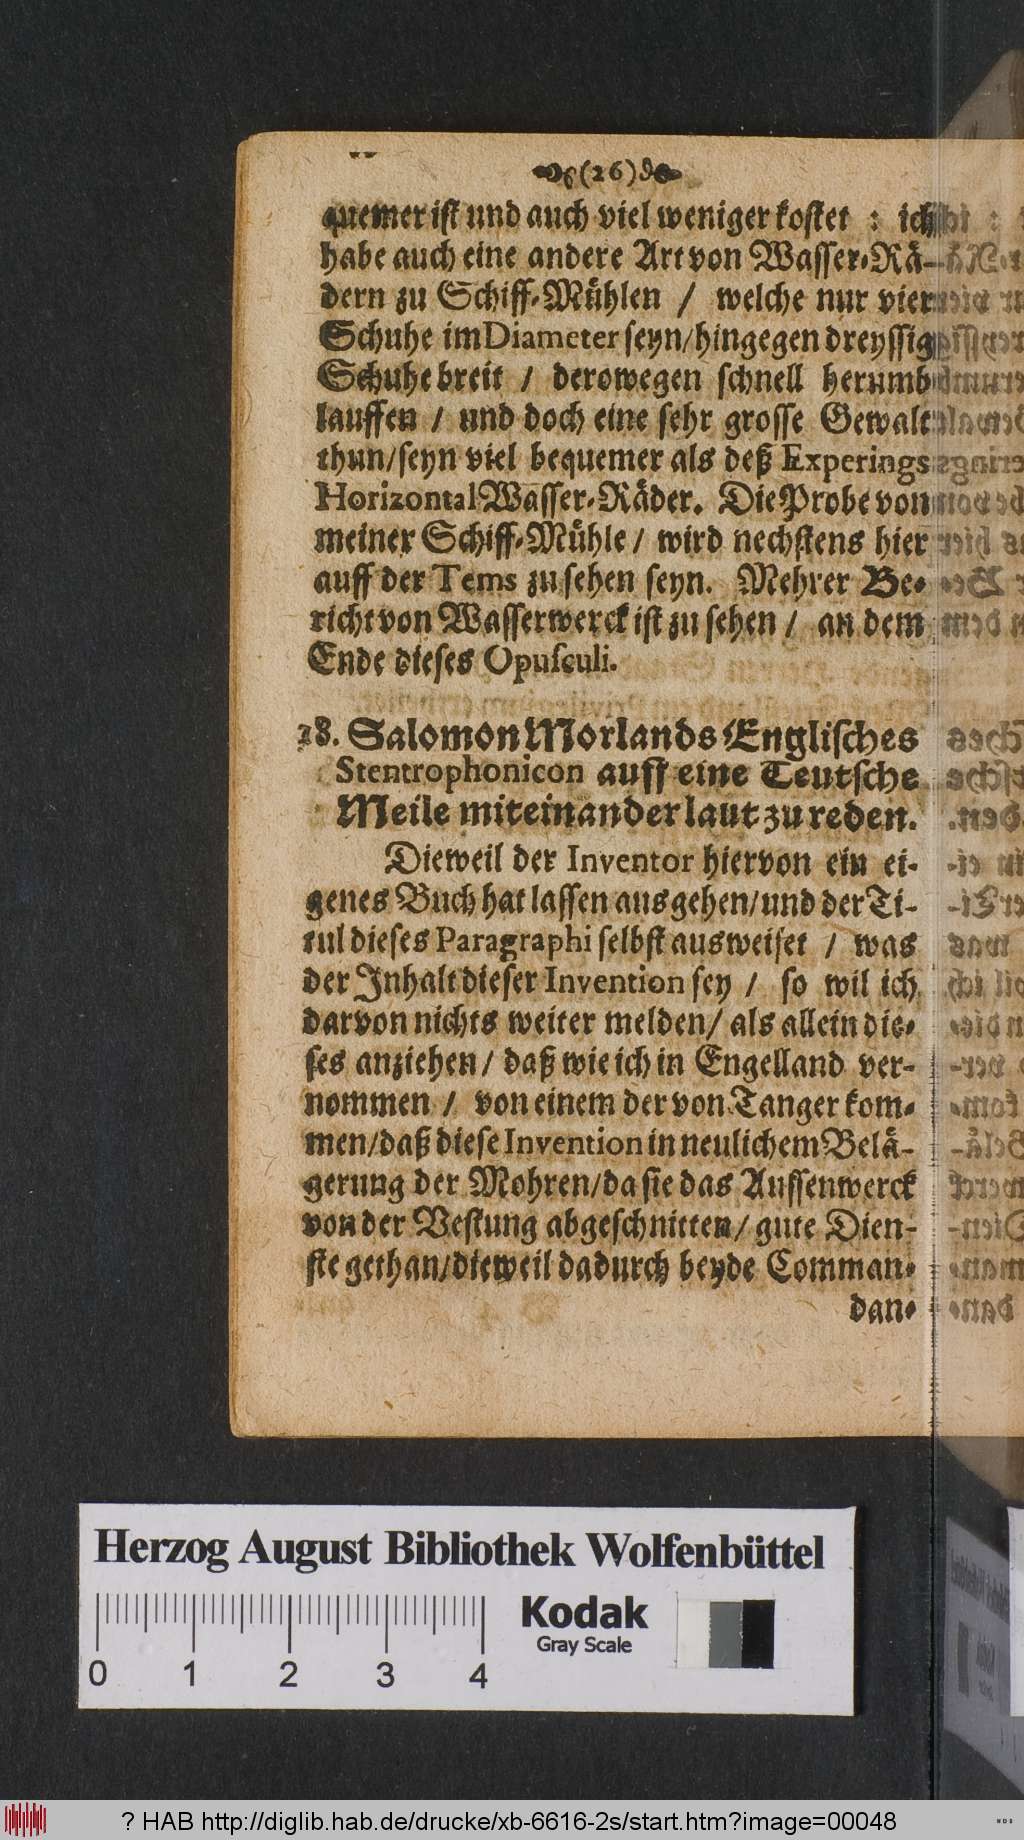 (26)
quemer ist und auch viel weniger kostet : ich
habe auch eine andere Art von Wasser-Rä-
dern zu Schiff-Mühlen / welche nur vier
Schuhe im Diameter seyn/hingegen dreyssig
Schuhe breit / derowegen schnell herumb
lauffen / und doch eine sehr grosse Gewalt
thun/seyn viel bequemer als deß Experings
Horizontal Wasser-Räder. Die Probe von
meiner Schiff-Mühle / wird nechstens hier
auff der Tems zu sehen seyn. Mehrer Be-
richt von Wasserwerck ist zu sehen / an dem
Ende dieses Opusculi.
28. Salomon Morlands Englisches
Stentrophonicon auff eine Teutsche
Meile miteinander laut zu reden.
Dieweil der Inventor hiervon ein ei-
genes Buch hat lassen ausgehen/und der Ti-
tul dieses Paragraphi selbst ausweiset / was
der Inhalt dieser Invention sey / so wil ich
darvon nichts weiter melden/ als allein die-
ses anziehen / daß wie ich in Engelland ver-
nommen / von einem der von Tanger kom-
men/daß diese Invention in neulichem Belä-
gerung der Mohren/da sie das Aussenwerck
von der Vestung abgeschnitten/ gute Dien-
ste gethan/dieweil dadurch beyde Comman-
dan-
Herzog August Bibliothek Wolfenbüttel
Kodak
Gray Scale
0 1 2 3 4
? HAB http://diglib.hab.de/drucke/xb-6616-2s/start.htm?image=00048